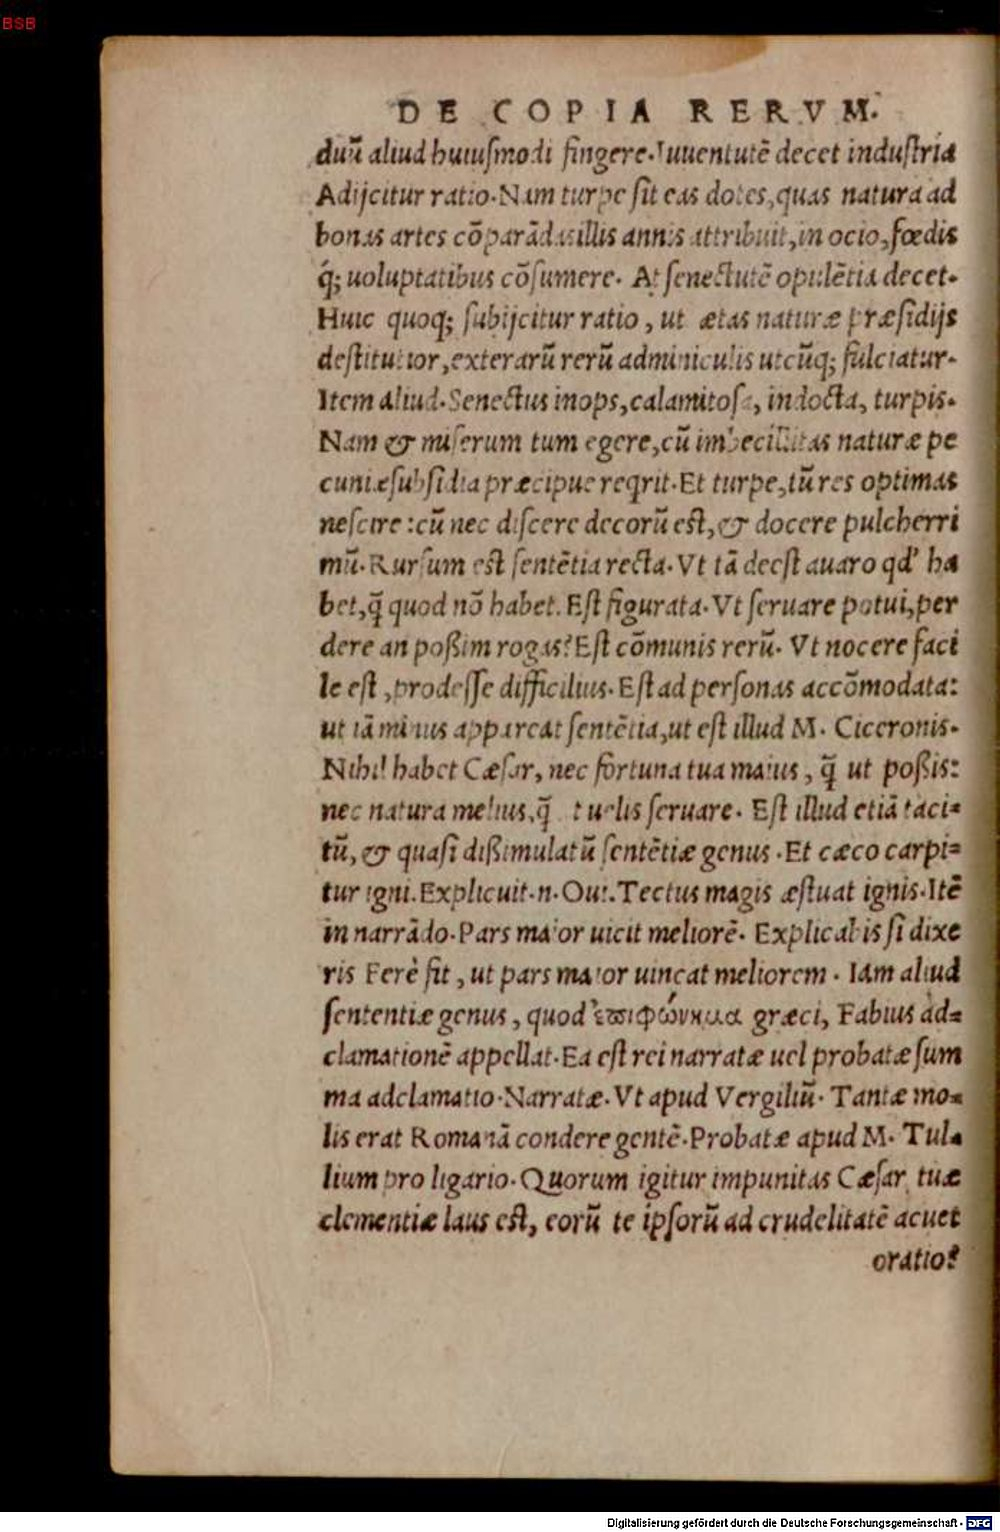 BSB
DE COPIA RERVM.
duũ aliud huiuſmodi fingere. Iuuentutẽ decet induſtria
Adijcitur ratio. Nam turpe ſit eas dotes, quas natura ad
bonas artes cõparãdas illis annis attribuit, in ocio, fœdis
q́; uoluptatibus cõſumere. At ſenectutẽ opulẽtia decet.
Huic quoq; ſubijcitur ratio, ut ætas naturæ præſidijs
deſtitutior, exterarũ rerũ adminiculis utcũq; fulciatur.
Item aliud. Senectus inops, calamitoſa, indocta, turpis.
Nam & miſerum tum egere, cũ imbecillitas naturæ pe
cuniæ ſubſidia præcipue reqrit. Et turpe, tũ res optimas
neſcire: cũ nec diſcere decorũ eſt, & docere pulcherri
mũ. Rurſum eſt ſentẽtia recta. Vt tã deeſt auaro qd' ha
bet, q̃ quod nõ habet. Eſt figurata. Vt ſeruare potui, per
dere an poßim rogas? Eſt cõmunis rerũ. Vt nocere faci
le eſt, prodeſſe difficilius. Eſt ad perſonas accõmodata:
ut iã minus appareat ſentẽtia, ut eſt illud M. Ciceronis.
Nihil habet Cæſar, nec fortuna tua maius, q̃ ut poßis:
nec natura melius, q̃ ut uelis ſeruare. Eſt illud etiã taci=
tũ, & quaſi dißimulatũ ſentẽtiæ genus. Et cæco carpi=
tur igni. Explicuit.n. Oui. Tectus magis æſtuat ignis. Itẽ
in narrãdo. Pars maior uicit meliorẽ. Explicabis ſi dixe
ris Ferè fit, ut pars maior uincat meliorem. Iam aliud
ſententiæ genus, quod ἐπιφώνημα græci, Fabius ad=
clamationẽ appellat. Ea eſt rei narratæ uel probatæ ſum
ma adclamatio. Narratæ. Vt apud Vergiliũ. Tantæ mo=
lis erat Romanã condere gentẽ. Probatæ apud M. Tul=
lium pro ligario. Quorum igitur impunitas Cæſar tuæ
clementiæ laus eſt, eorũ te ipſorũ ad crudelitatẽ acuet
oratio?
Digitalisierung gefördert durch die Deutsche Forschungsgemeinschaft - DFG